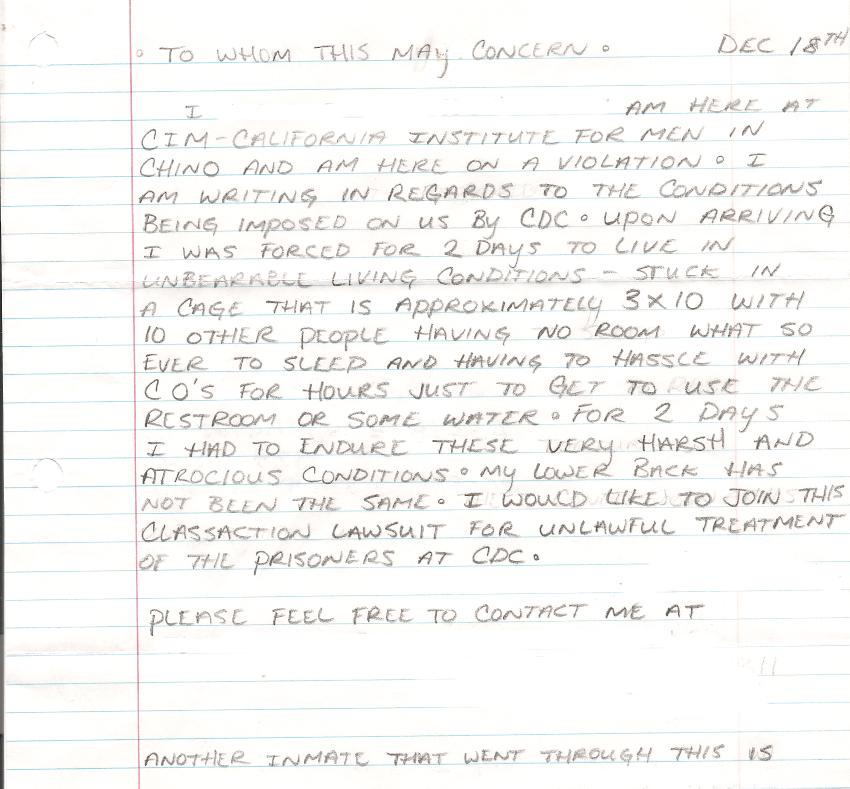 ° TO WHOM THIS MAY CONCERN ° DEC 18TH
I AM HERE AT
CIM-CALIFORNIA INSTITUTE FOR MEN IN
CHINO AND AM HERE ON A VIOLATION. I
AM WRITING IN REGARDS TO THE CONDITIONS
BEING IMPOSED ON US BY CDC. UPON ARRIVING
I WAS FORCED FOR 2 DAYS TO LIVE IN
UNBEARABLE LIVING CONDITIONS - STUCK IN
A CAGE THAT IS APPROXIMATELY 3X10 WITH
10 OTHER PEOPLE HAVING NO ROOM WHAT SO
EVER TO SLEEP AND HAVING TO HASSLE WITH
C O'S FOR HOURS JUST TO GET TO USE THE
RESTROOM OR SOME WATER. FOR 2 DAYS
I HAD TO ENDURE THESE VERY HARSH AND
ATROCIOUS CONDITIONS. MY LOWER BACK HAS
NOT BEEN THE SAME. I WOULD LIKE TO JOIN THIS
CLASSACTION LAWSUIT FOR UNLAWFUL TREATMENT
OF THE PRISONERS AT CDC.
PLEASE FEEL FREE TO CONTACT ME AT
ANOTHER INMATE THAT WENT THROUGH THIS IS